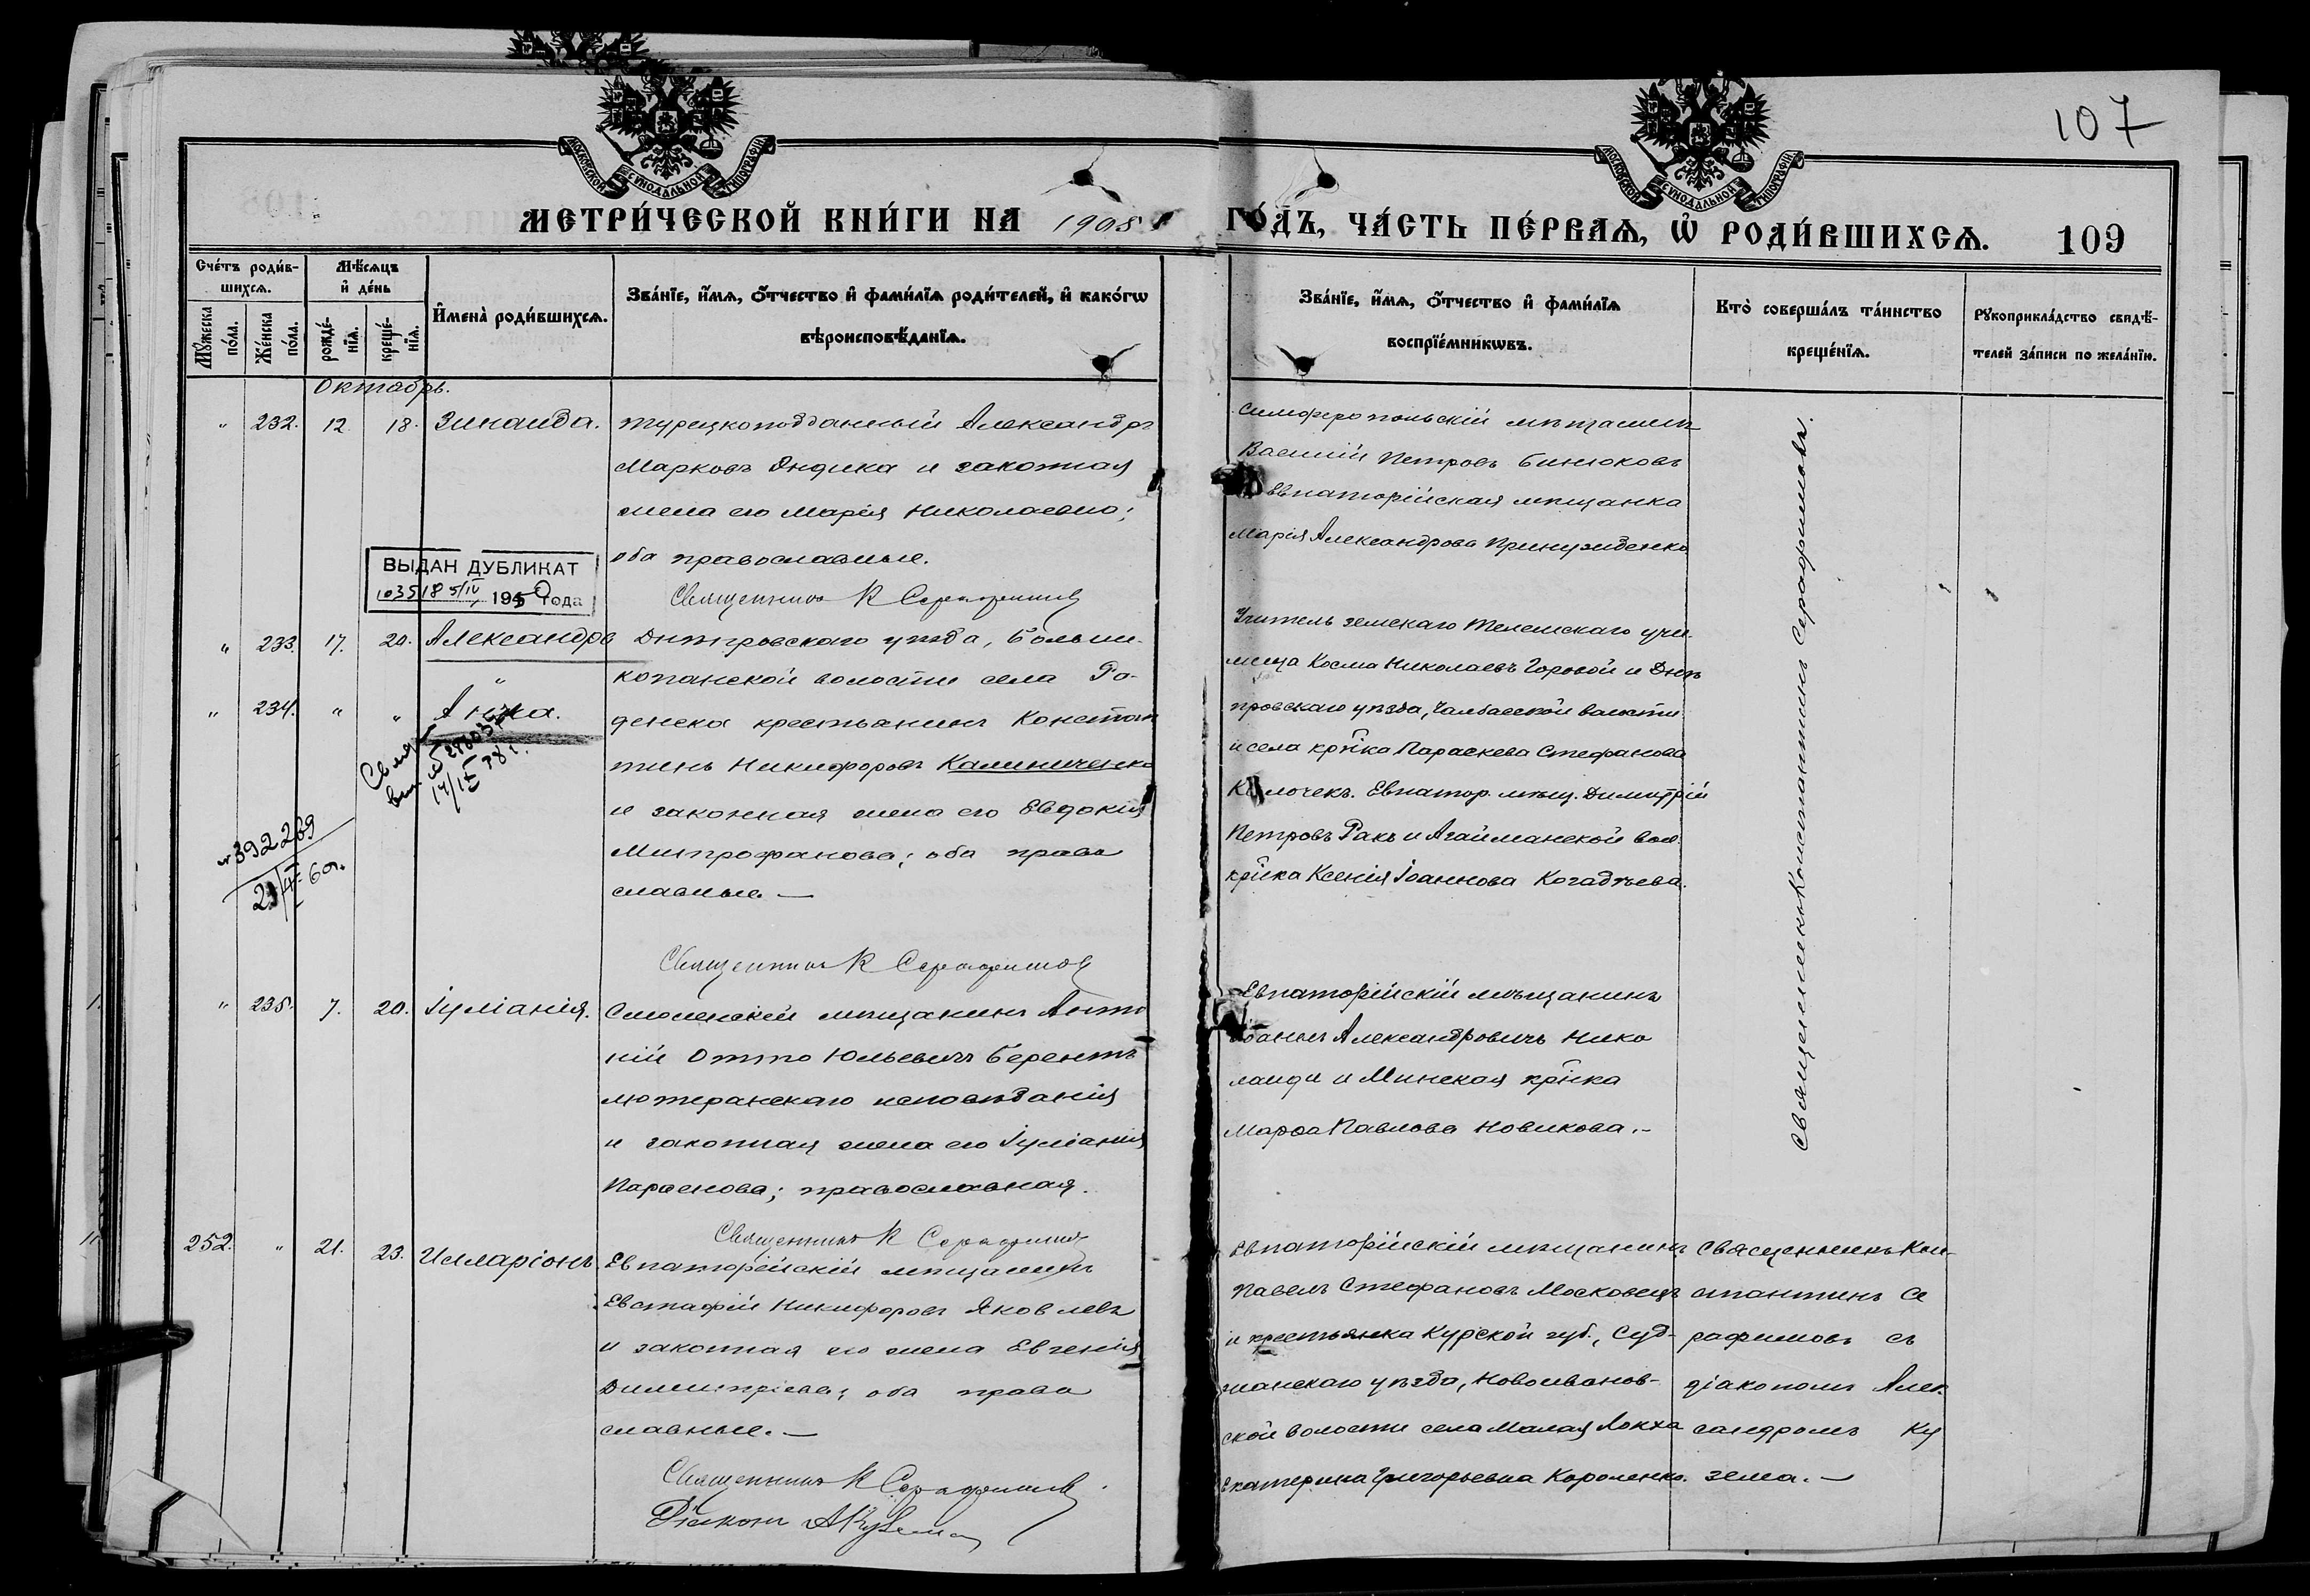 107
МОСКОВСКОЙ СѴНОДАЛЬНОЙ ТИПОГРАФІИ
МОСКОВСКОЙ СѴНОДАЛЬНОЙ ТИПОГРАФІИ
МЕТРИ́ЧЕСКОЙ КНИ́ГИ НА 1908
ГО́ДЪ, ЧА́СТЬ ПЕ́РВАѦ, Ѡ҆ РОДИ́ВШИХСѦ. 109
Сче́тъ роди́в-
шихсѧ.
Мѣ́сѧцъ
и҆ де́нь
Мꙋ́жеска по́ла.
Же́нска по́ла.
рожде́-
нїѧ.
креще́-
нїѧ.
И҆мена̀ роди́вшихсѧ.
Зва́нїе, и҆́мѧ, ѻ҆́тчество и҆ фами́лїѧ роди́телей, и҆ како́гѡ
вѣроисповѣ́данїѧ.
Зва́нїе, и҆́мѧ, ѻ҆́тчество и҆ фами́лїѧ
воспрїе́мникѡвъ.
Кто̀ соверша́лъ та́инство
креще́нїѧ.
Рꙋкоприкла́дство свидѣ́-
телей за́писи по жела́нїю.
Октябрь.
" 232. 12. 18. Зинаида.
турецкоподданный Александръ
Марковъ Яндика и законная
жена его Марія Николаевна;
оба православные.
Священникъ К Серафимовъ
Симферопольскій мѣщанинъ
Василій Петровъ Бинюковъ
Евпаторійская мѣщанка
Марія Александрова Принужденко
ВЫДАН ДУБЛИКАТ
103518 5/IV 1950 года
" 233. 17. 20. Александра
" 234. " " Анна.
Днѣпровскаго уѣзда, Больше-
копанской волости села Ра-
денска крестьянинъ Констан
тинъ Никифоровъ Калиниченко
и законная жена его Евдокія
Митрофанова; оба право
славные. —
Священникъ К Серафимовъ
Учитель земскаго Телешскаго учи-
лища Косма Николаевъ Горовой и Днѣ
провскаго уѣзда, Чалбасской волости
и села кр҃нка Параскева Стефанова
Петровъ Ракъ и Агайманской вол.
кр҃нка Ксенія Іоаннова Когадѣева.
№ 392269
" 235. 7. 20. Іуліанія.
Смоленскій мѣщанинъ Анто
ній Отто Юльевичъ Берентъ
лютеранскаго исповѣданія
и законная жена его Іуліанія
Парѳенова; православная.
Священникъ К Серафимовъ
Евпаторійскій мѣщанинъ
Іоаннъ Александровичъ Нико
лаиди и Минская кр҃нка
Марѳа Павлова Новикова. -
Священникъ Константинъ Серафимовъ.
252. " 21. 23. Илларіонъ.
Евпаторійскій мѣщанинъ
Евстафій Никифоровъ Яковлевъ
и законная его жена Евгенія
Димитріева; оба право
славные. —
Священникъ К Серафимовъ
Діаконъ А Кузема
Евпаторійскій мѣщанинъ
Павелъ Стефановъ Московецъ
и крестьянка Курской губ., Суд-
жанскаго уѣзда, Новоиванов-
ской волости села Малая Локня
Екатерина Григорьевна Короленко.
Священникъ Кон-
стантинъ Се
рафимовъ съ
діакономъ Алек
сандромъ Ку
зема. —